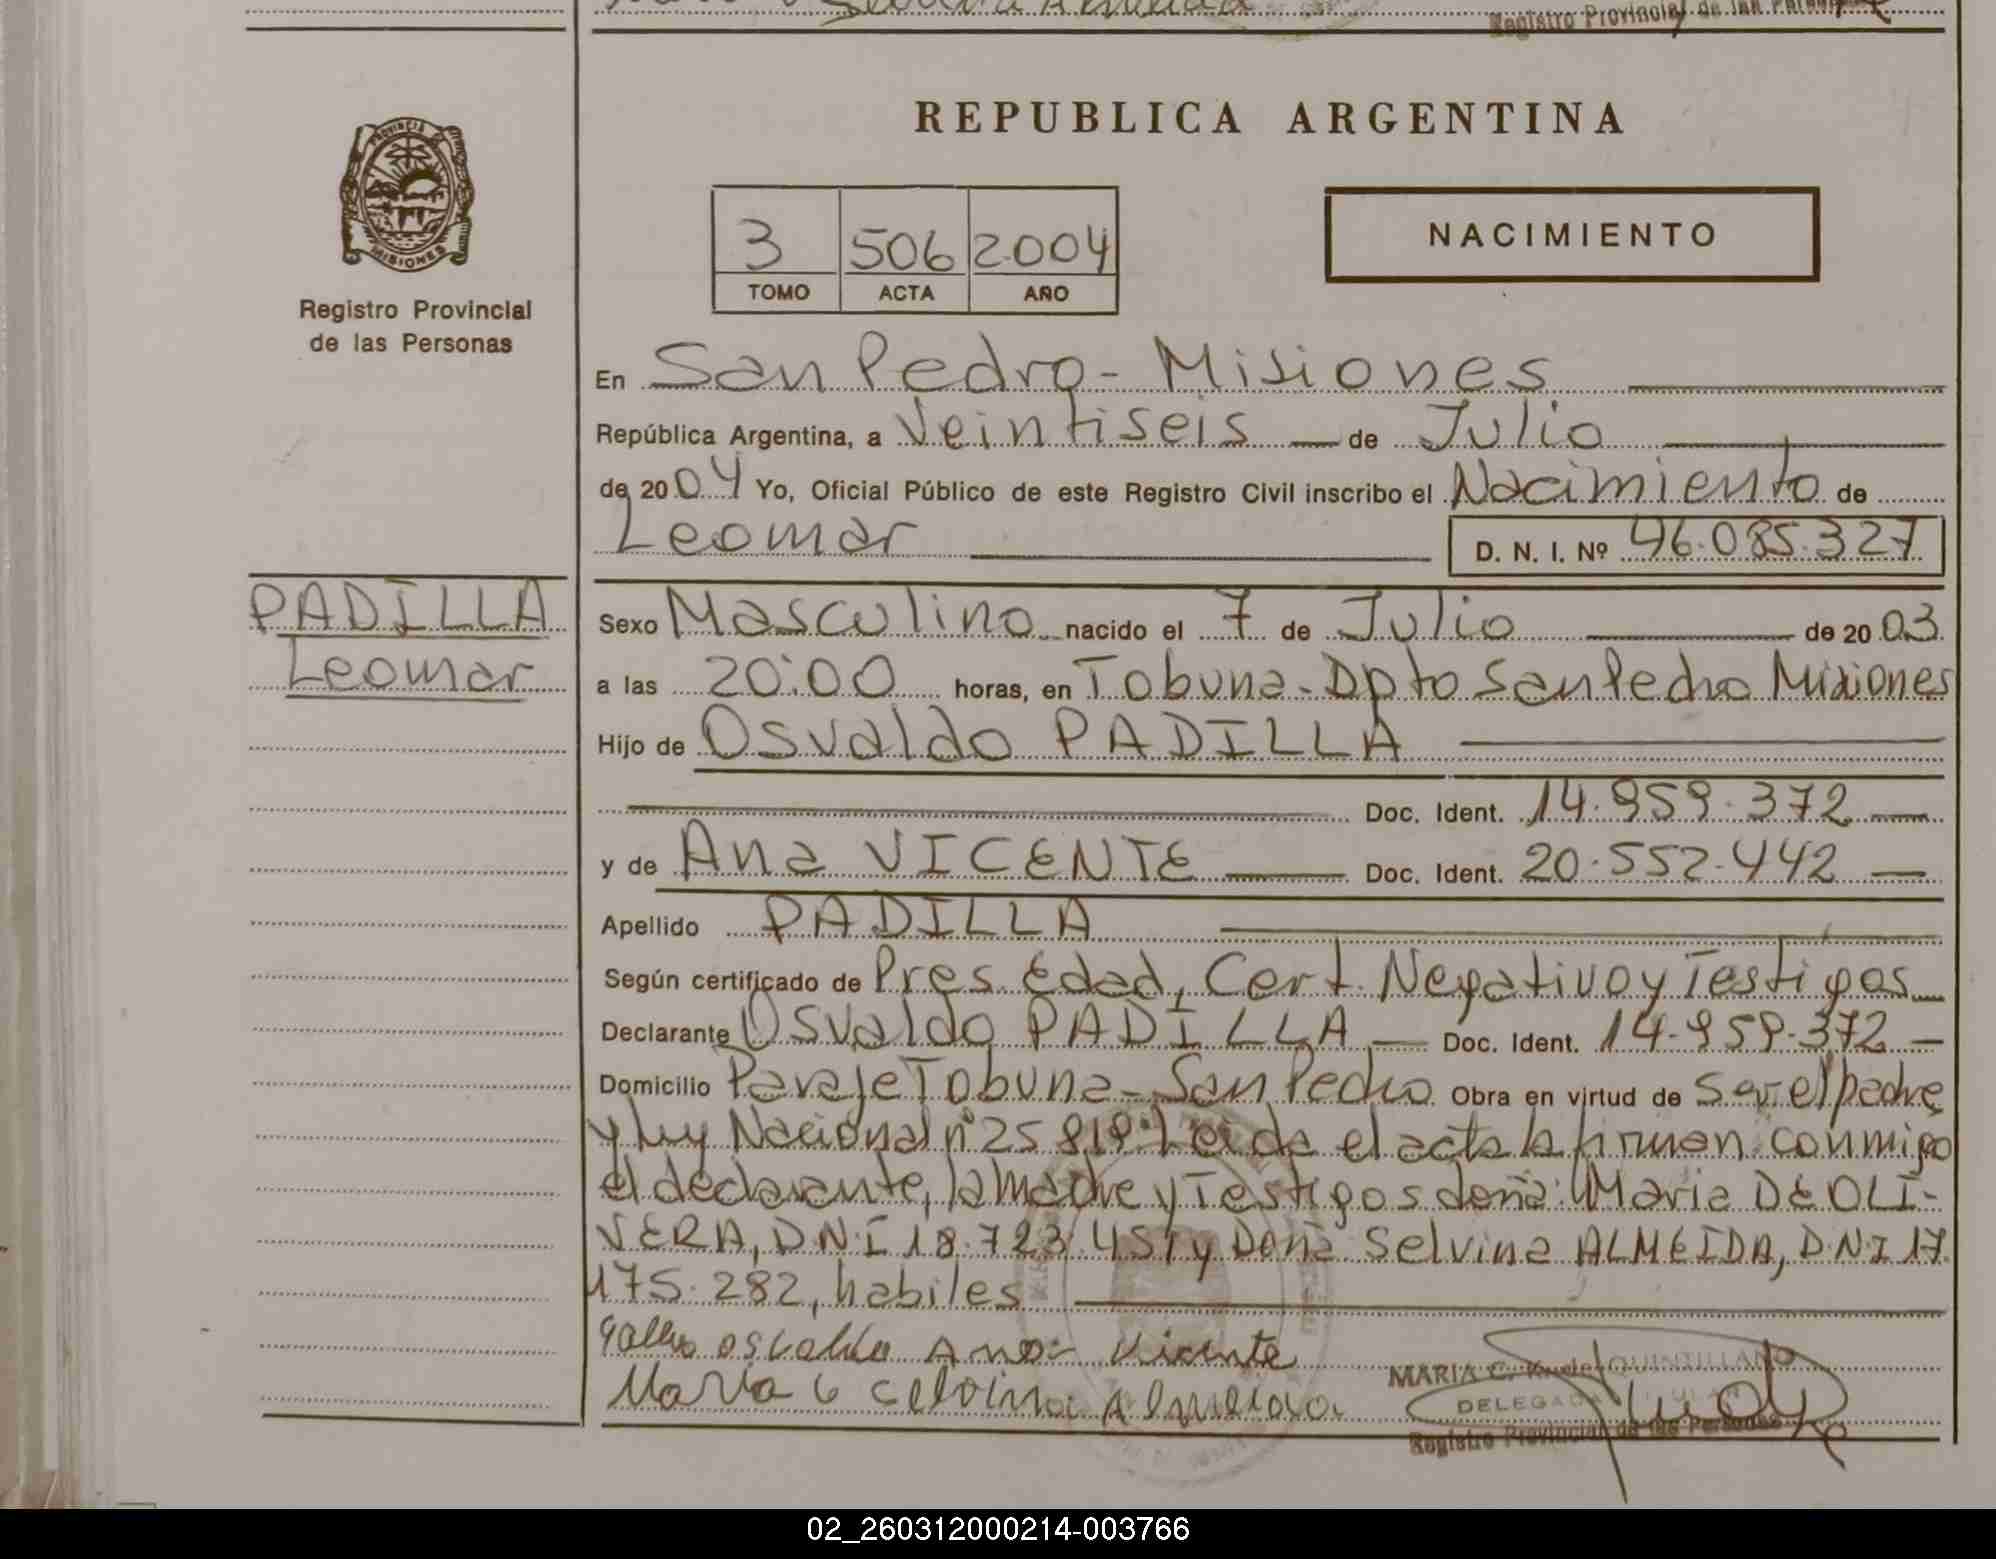 Registro Provincial de las Personas
REPUBLICA ARGENTINA
PROVINCIA DE
MISIONES
Registro Provincial
de las Personas
3 506 2004
TOMO ACTA AÑO
NACIMIENTO
En San Pedro - Misiones
República Argentina, a Veintiseis de Julio
de 2004 Yo, Oficial Público de este Registro Civil inscribo el Nacimiento de
Leomar D. N. I. Nº 46.085.327
PADILLA
Leomar
Sexo Masculino nacido el 7 de Julio de 2003
a las 20:00 horas, en Tobuna - Dpto San Pedro Misiones
Hijo de Osvaldo PADILLA
Doc. Ident. 14.959.372
y de Ana VICENTE Doc. Ident. 20.552.442
Apellido PADILLA
Según certificado de Pres. Edad, Cert. Negativo y Testigos
Declarante Osvaldo PADILLA Doc. Ident. 14.959.372
Domicilio Paraje Tobuna - San Pedro Obra en virtud de Ser el padre
y Ley Nacional nº 25.819. Leida el acta la firman conmigo
el declarante, la madre y Testigos doña: Maria DE OLI-
VERA, D.N.I 18.723.451 y Doña Selvina ALMEIDA, D.N.I 17.
175.282, habiles
osvaldo Ana Vicente
Maria Celvina Almeida
MARIA C. de QUINTILLANO
DELEGADA TITULAR
Registro Provincial de las Personas
02_260312000214-003766